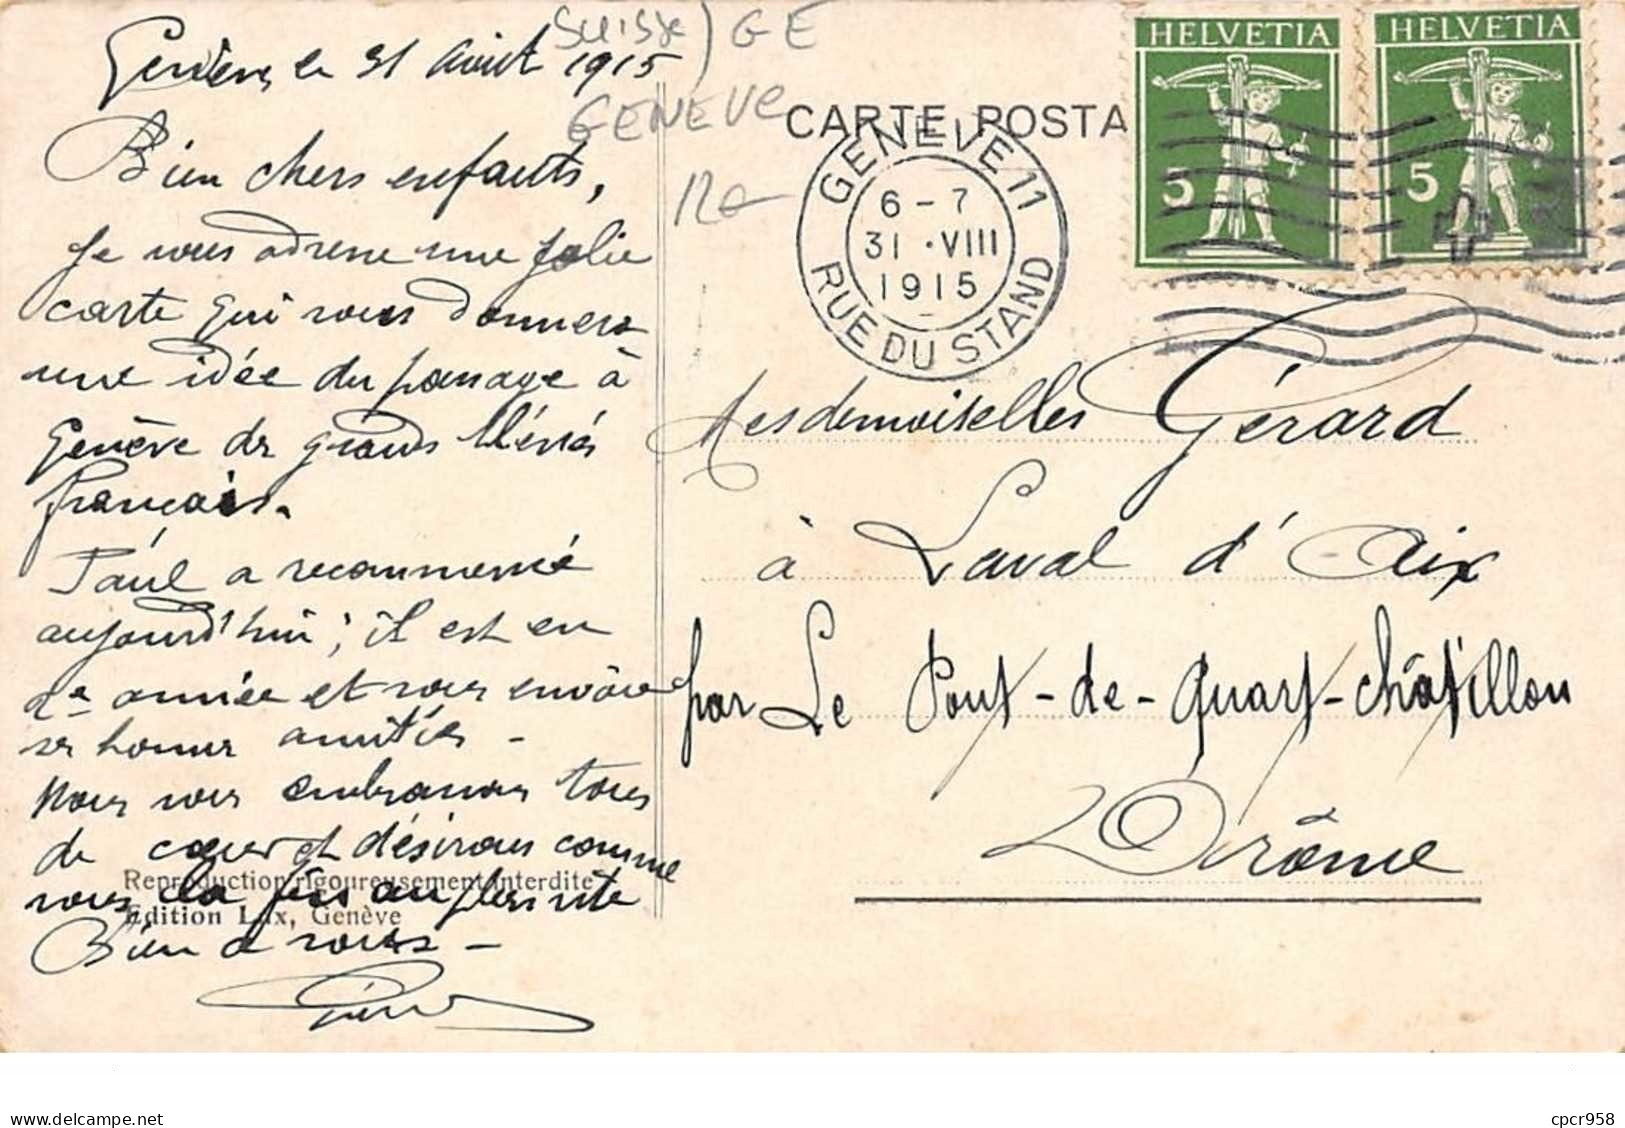 Genève, le 31 août 1915
Suisse / GE
GENEVE
CARTE POSTA
GENEVE 11
6-7
31 · VIII
1915
RUE DU STAND
HELVETIA
5
HELVETIA
5
Bien chers enfants,
Je vous adresse une jolie
carte qui vous donnera
une idée du passage à
Genève des grands blessés
français.
Paul a recommencé
aujourd'hui ; il est en
2e année et vous envoie
ses bonnes amitiés -
Nous vous embrassons tous
de cœur et désirons comme
vous la fin au plus vite
Bien à vous -
Reproduction rigoureusement interdite
Edition Lux, Genève
Mesdemoiselles Gérard
à Laval d'Aix
par Le Pont-de-Quart-Châtillon
Drôme
Delcampe.net
cpcr958